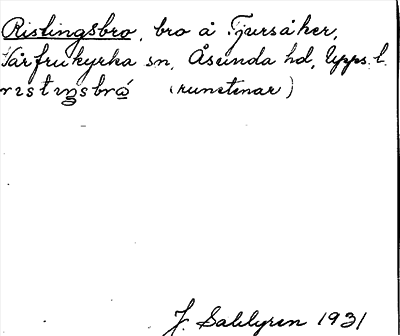 Ristingsbro, bro å Tjursåker,
Vårfrukyrka sn, Åsunda hd, Upps. l.
rɪstɪŋsbro (runstenar)
J. Sahlgren 1931